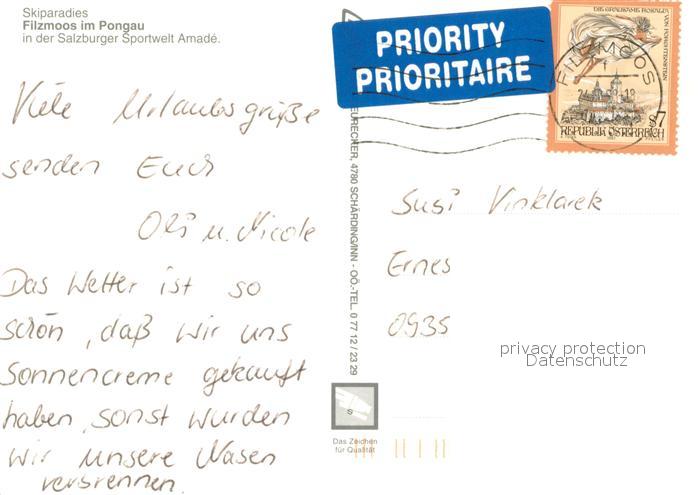 Skiparadies
Filzmoos im Pongau
in der Salzburger Sportwelt Amadé.
Viele Urlaubsgrüße
senden Euch
Oli u. Nicole
Das Wetter ist so
schön, daß wir uns
Sonnencreme gekauft
haben, sonst würden
wir unsere Nasen
verbrennen.
PRIORITY
PRIORITAIRE
DIE GRAUSAME ROSALIA
VON FORCHTENSTEIN
FILZMOOS
S7
REPUBLIK ÖSTERREICH
EURECHER, 4780 SCHÄRDING/INN - OÖ.-TEL. 0 77 12 / 23 29
Susi Vinklarek
Ernes
0935
privacy protection
Datenschutz
S
Das Zeichen
für Qualität